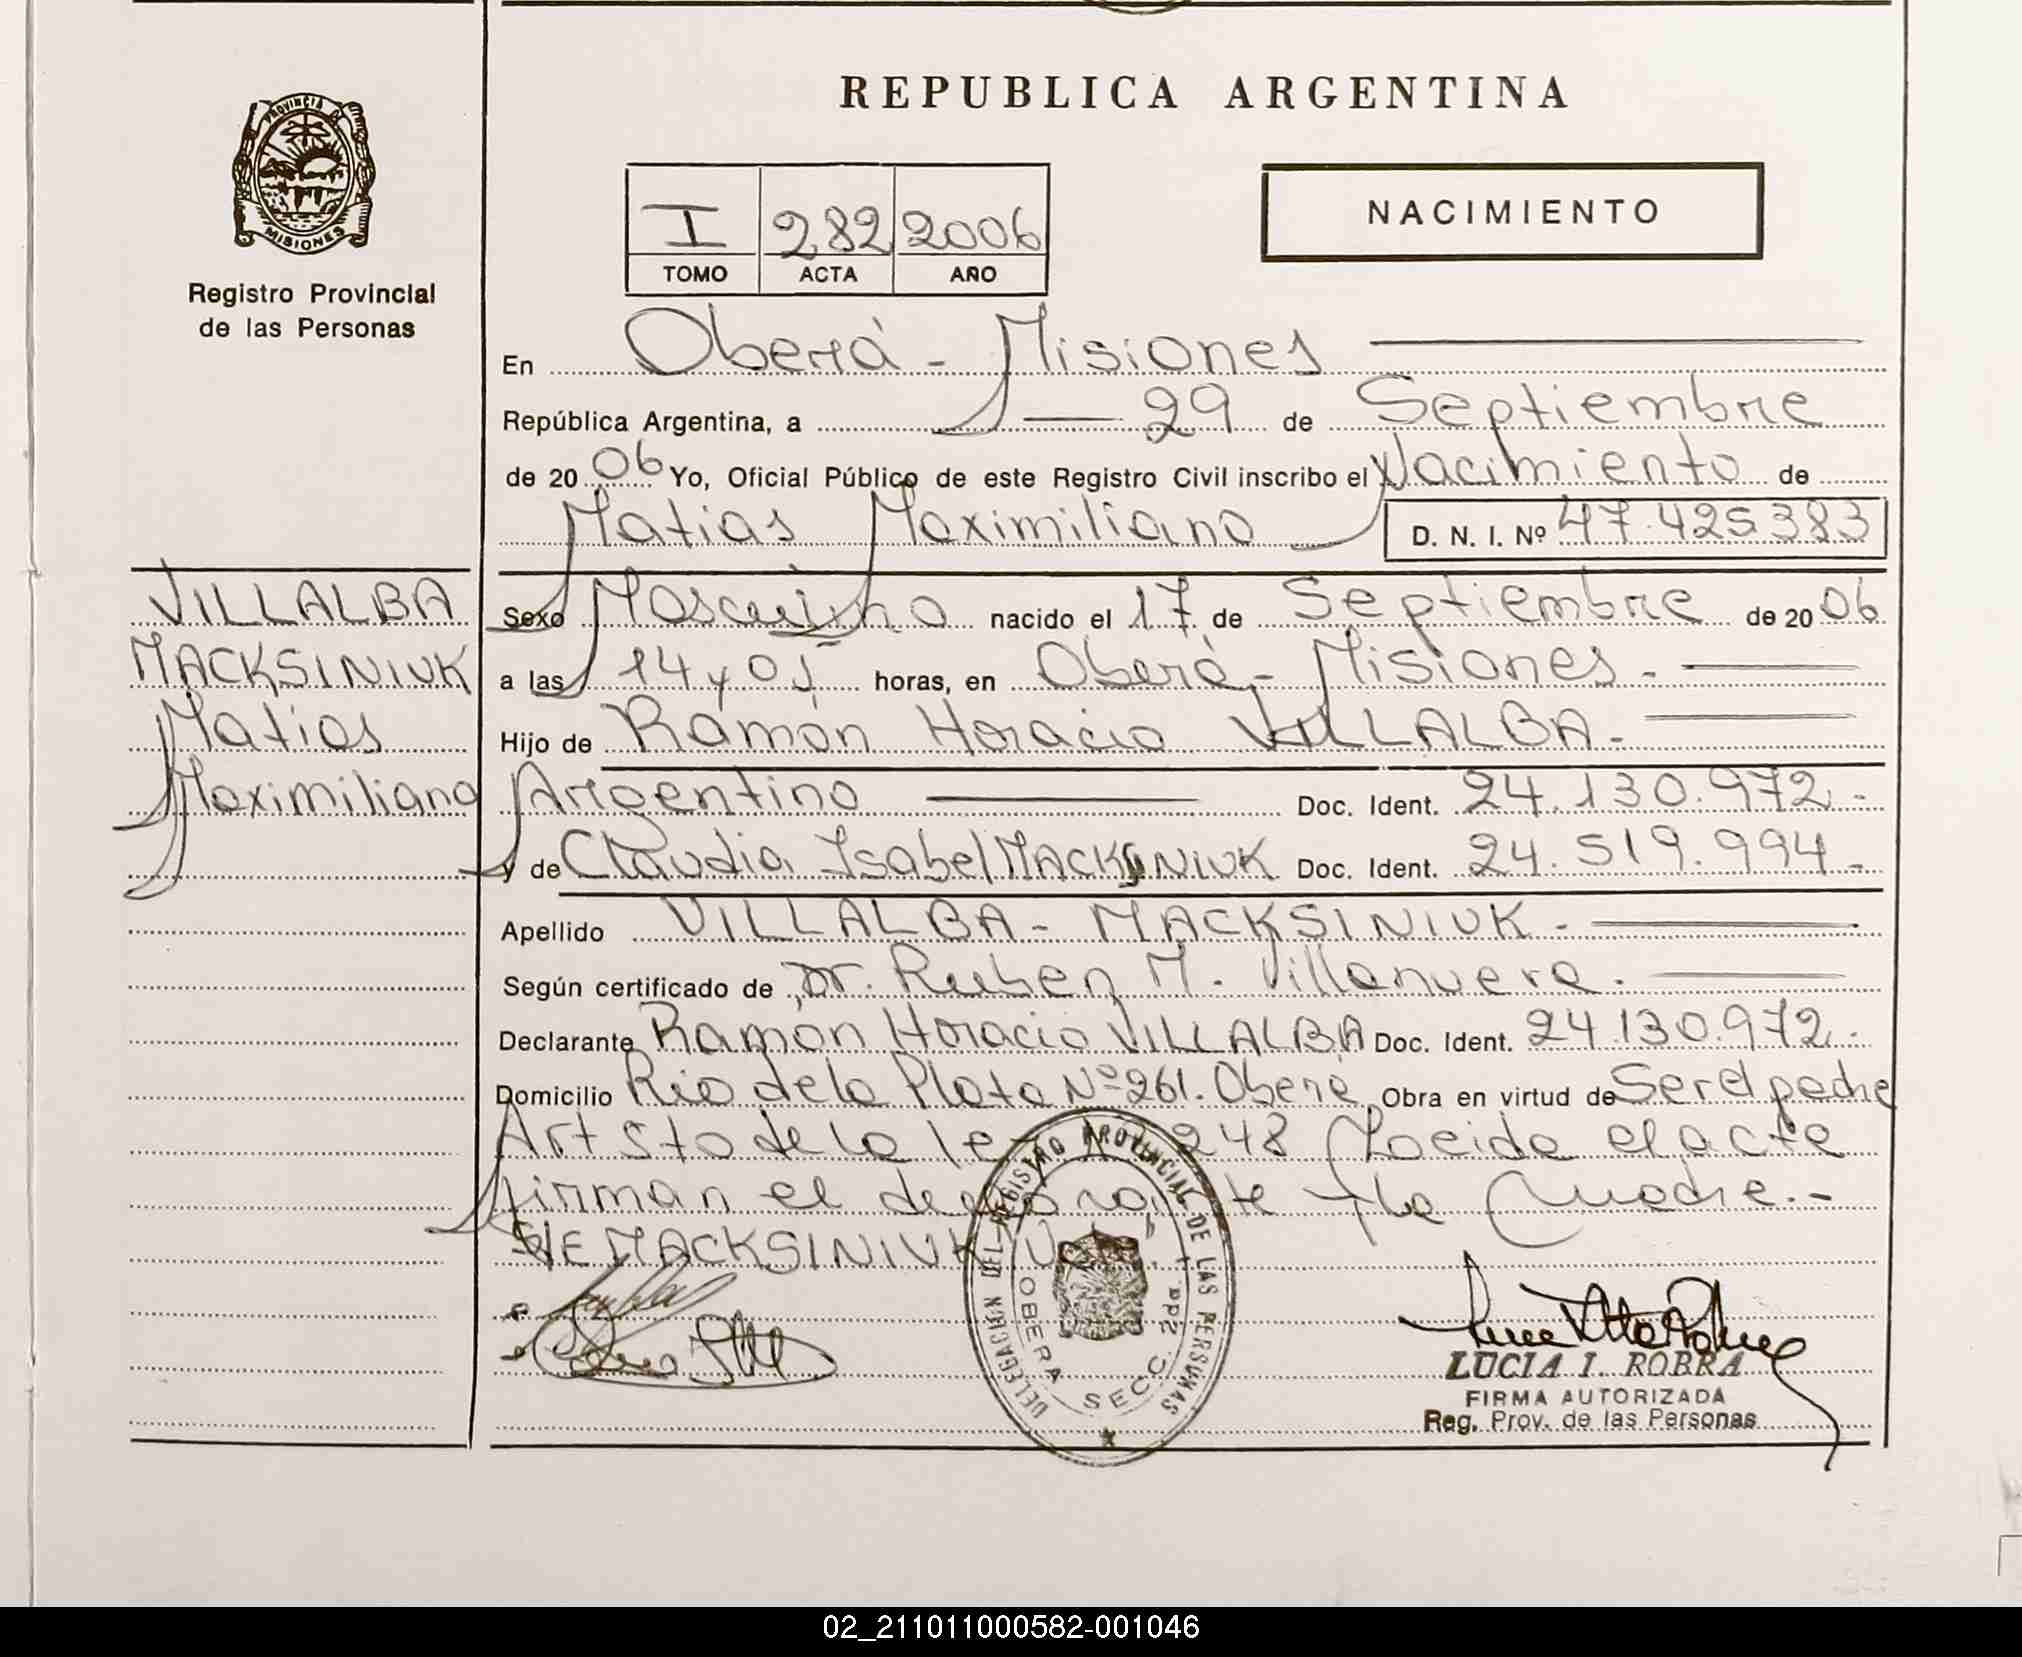 REPUBLICA ARGENTINA
PROVINCIA DE
MISIONES
Registro Provincial
de las Personas
I 282 2006
TOMO ACTA AÑO
NACIMIENTO
En Oberá - Misiones
República Argentina, a 29 de Septiembre
de 2006 Yo, Oficial Público de este Registro Civil inscribo el Nacimiento de
Matias Maximiliano D. N. I. Nº 47.425383
VILLALBA
MACKSINIUK
Matias
Maximiliano
Sexo Masculino nacido el 17 de Septiembre de 2006
a las 14 y 05 horas, en Oberá - Misiones -
Hijo de Ramón Horacio VILLALBA -
Argentino Doc. Ident. 24.130.972 -
y de Claudia Isabel MACKSINIUK Doc. Ident. 24.519.994 -
Apellido VILLALBA - MACKSINIUK -
Según certificado de Dr. Ruben M. Villanueva.
Declarante Ramón Horacio VILLALBA Doc. Ident. 24.130.972 -
Domicilio Rio de la Plata Nº 261. Oberá Obra en virtud de Ser el padre
Art 5to de la 248 el acta
firman el declarante y la Madre.-
S/E MACKSINIUK
DELEGACION DEL REGISTRO PROVINCIAL DE LAS PERSONAS
OBERA SECC. 2da
LUCIA I. ROBRA
FIRMA AUTORIZADA
Reg. Prov. de las Personas
02_211011000582-001046